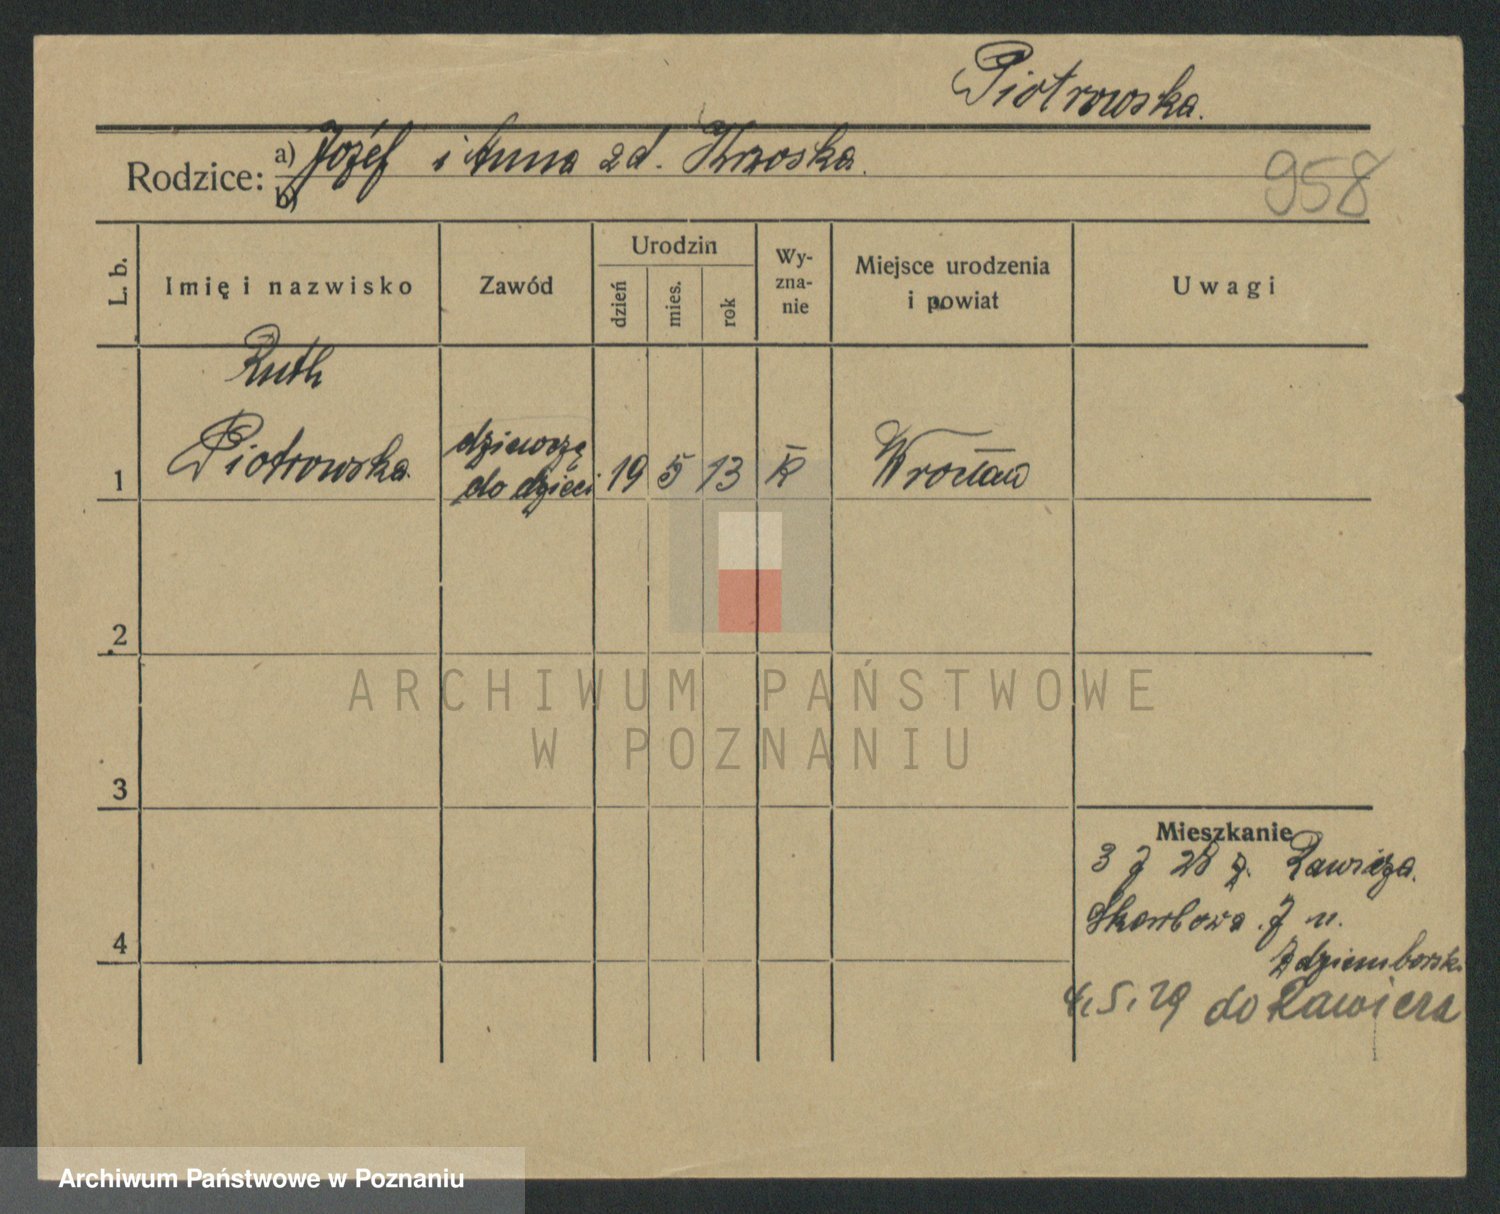 Piotrowska.
Rodzice: a) Józef i Anna zd.
b)
958
L. b.
Imię i nazwisko
Zawód
Urodzin
dzień
mies.
rok
Wy-
zna-
nie
Miejsce urodzenia
i powiat
Uwagi
Ruth
1 Piotrowska dziewczę
do dzieci 19 5 13 k Wrocław
2
3
4
Mieszkanie
3 7 28 z. Rawicza.
Skarbowa 7 u.
4.5.29 do Rawicza
ARCHIWUM PAŃSTWOWE
W POZNANIU
Archiwum Państwowe w Poznaniu